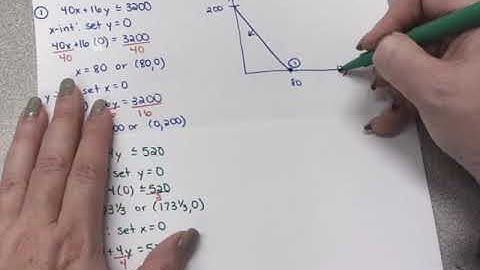 ① 40x+16y ≤ 3200
x-int: set y=0
40x+16(0) = 3200
40 40
x = 80 or (80,0)
set x=0
16y = 3200
16
or (0,200)
4y ≤ 520
set y=0
4(0) ≤ 520
3
173⅓ or (173⅓,0)
: set x=0
+ 4y = 5
4
200
①
80